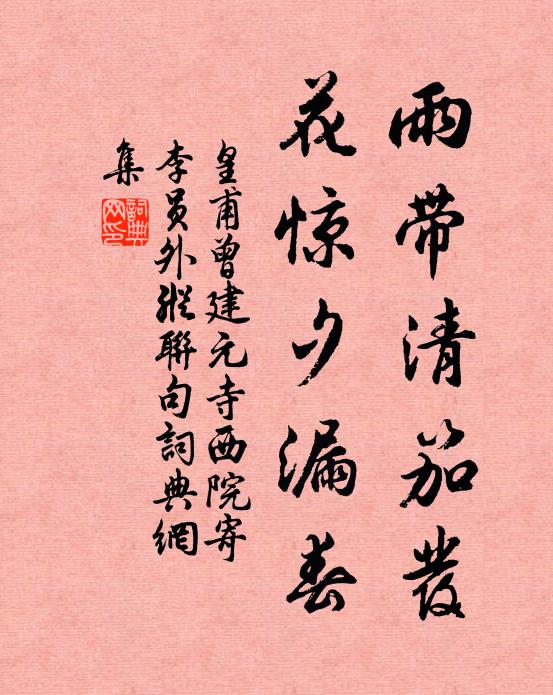 雨带清笳發
花惊夕漏春
皇甫曾建元寺西院寄
李員外縱聯句詞典網
集
詞典
网印